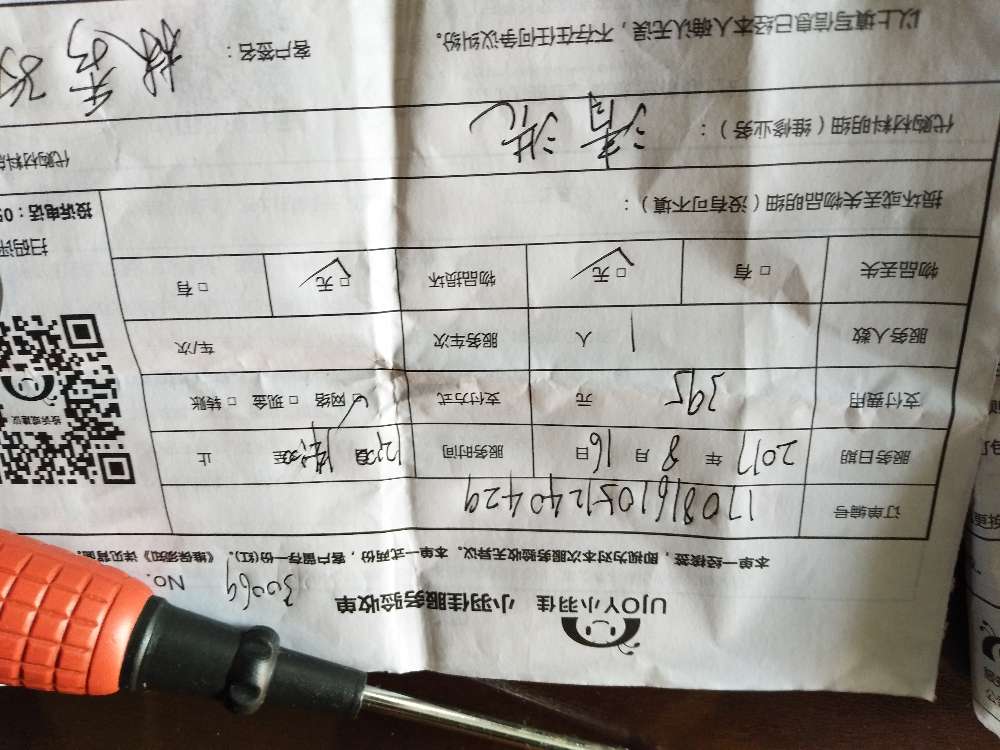 UJOY小羽佳 小羽佳服务验收单
No. 30069
本单一经接签,即视为对本次服务验收无异议。本单一式两份,客户留存一份(红)。《维保须知》详见背面。
订单编号 1708161051240429
服务日期 2017年8月16日 服务时间 止
支付费用 395 元 支付方式 □网络 □现金 □转账
服务人数 1人 服务车次 车/次
物品丢失 □有 □无 物品损坏 □无 □有
损坏或丢失物品明细(没有可不填):
投诉电话:05
扫码评
投诉或建议
代购材料明细(维修业务): 清洗
代购材料
以上填写信息已经本人确认无误,不存在任何争议纠纷。 客户签名: